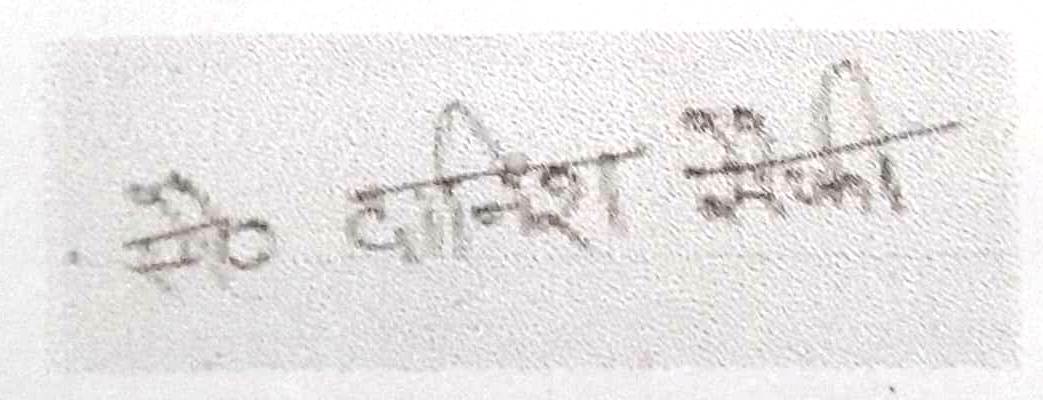 मो० दानिश सैफी